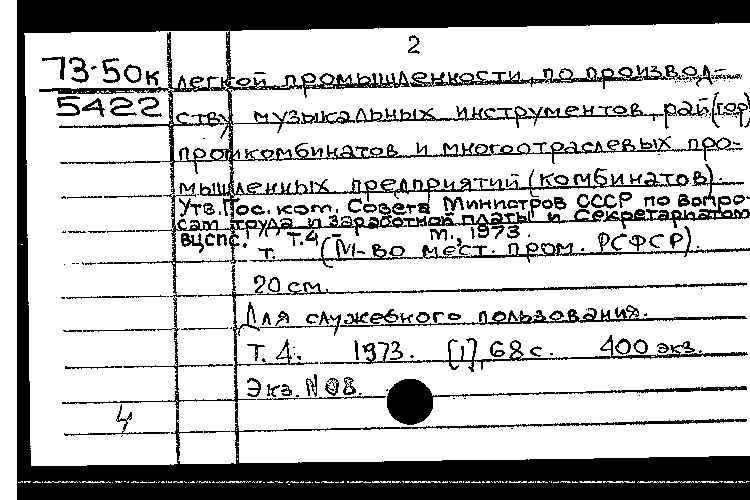 2
73-50к легкой промышленности, по производ-
5422 ству музыкальных инструментов, рай(гор)
промкомбинатов и многоотраслевых про-
мышленных предприятий (комбинатов).
Утв. Гос. ком. Совета Министров СССР по вопро-
сам труда и заработной платы и Секретариатом
ВЦСПС. Т.4 – М., 1973.
т. (М-во мест. пром. РСФСР).
20 см.
Для служебного пользования.
Т. 4. 1973. [1], 68 с. 400 экз.
Экз. N 08.
4